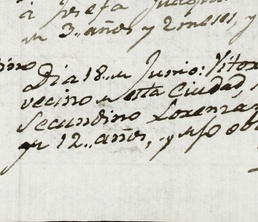 a Josefa
de 3.. años y 2 meses, y
Dia 18.. de Junio: Vitor
vecino de esta Ciudad,
Secundino Lorenza
de 12.. años, y